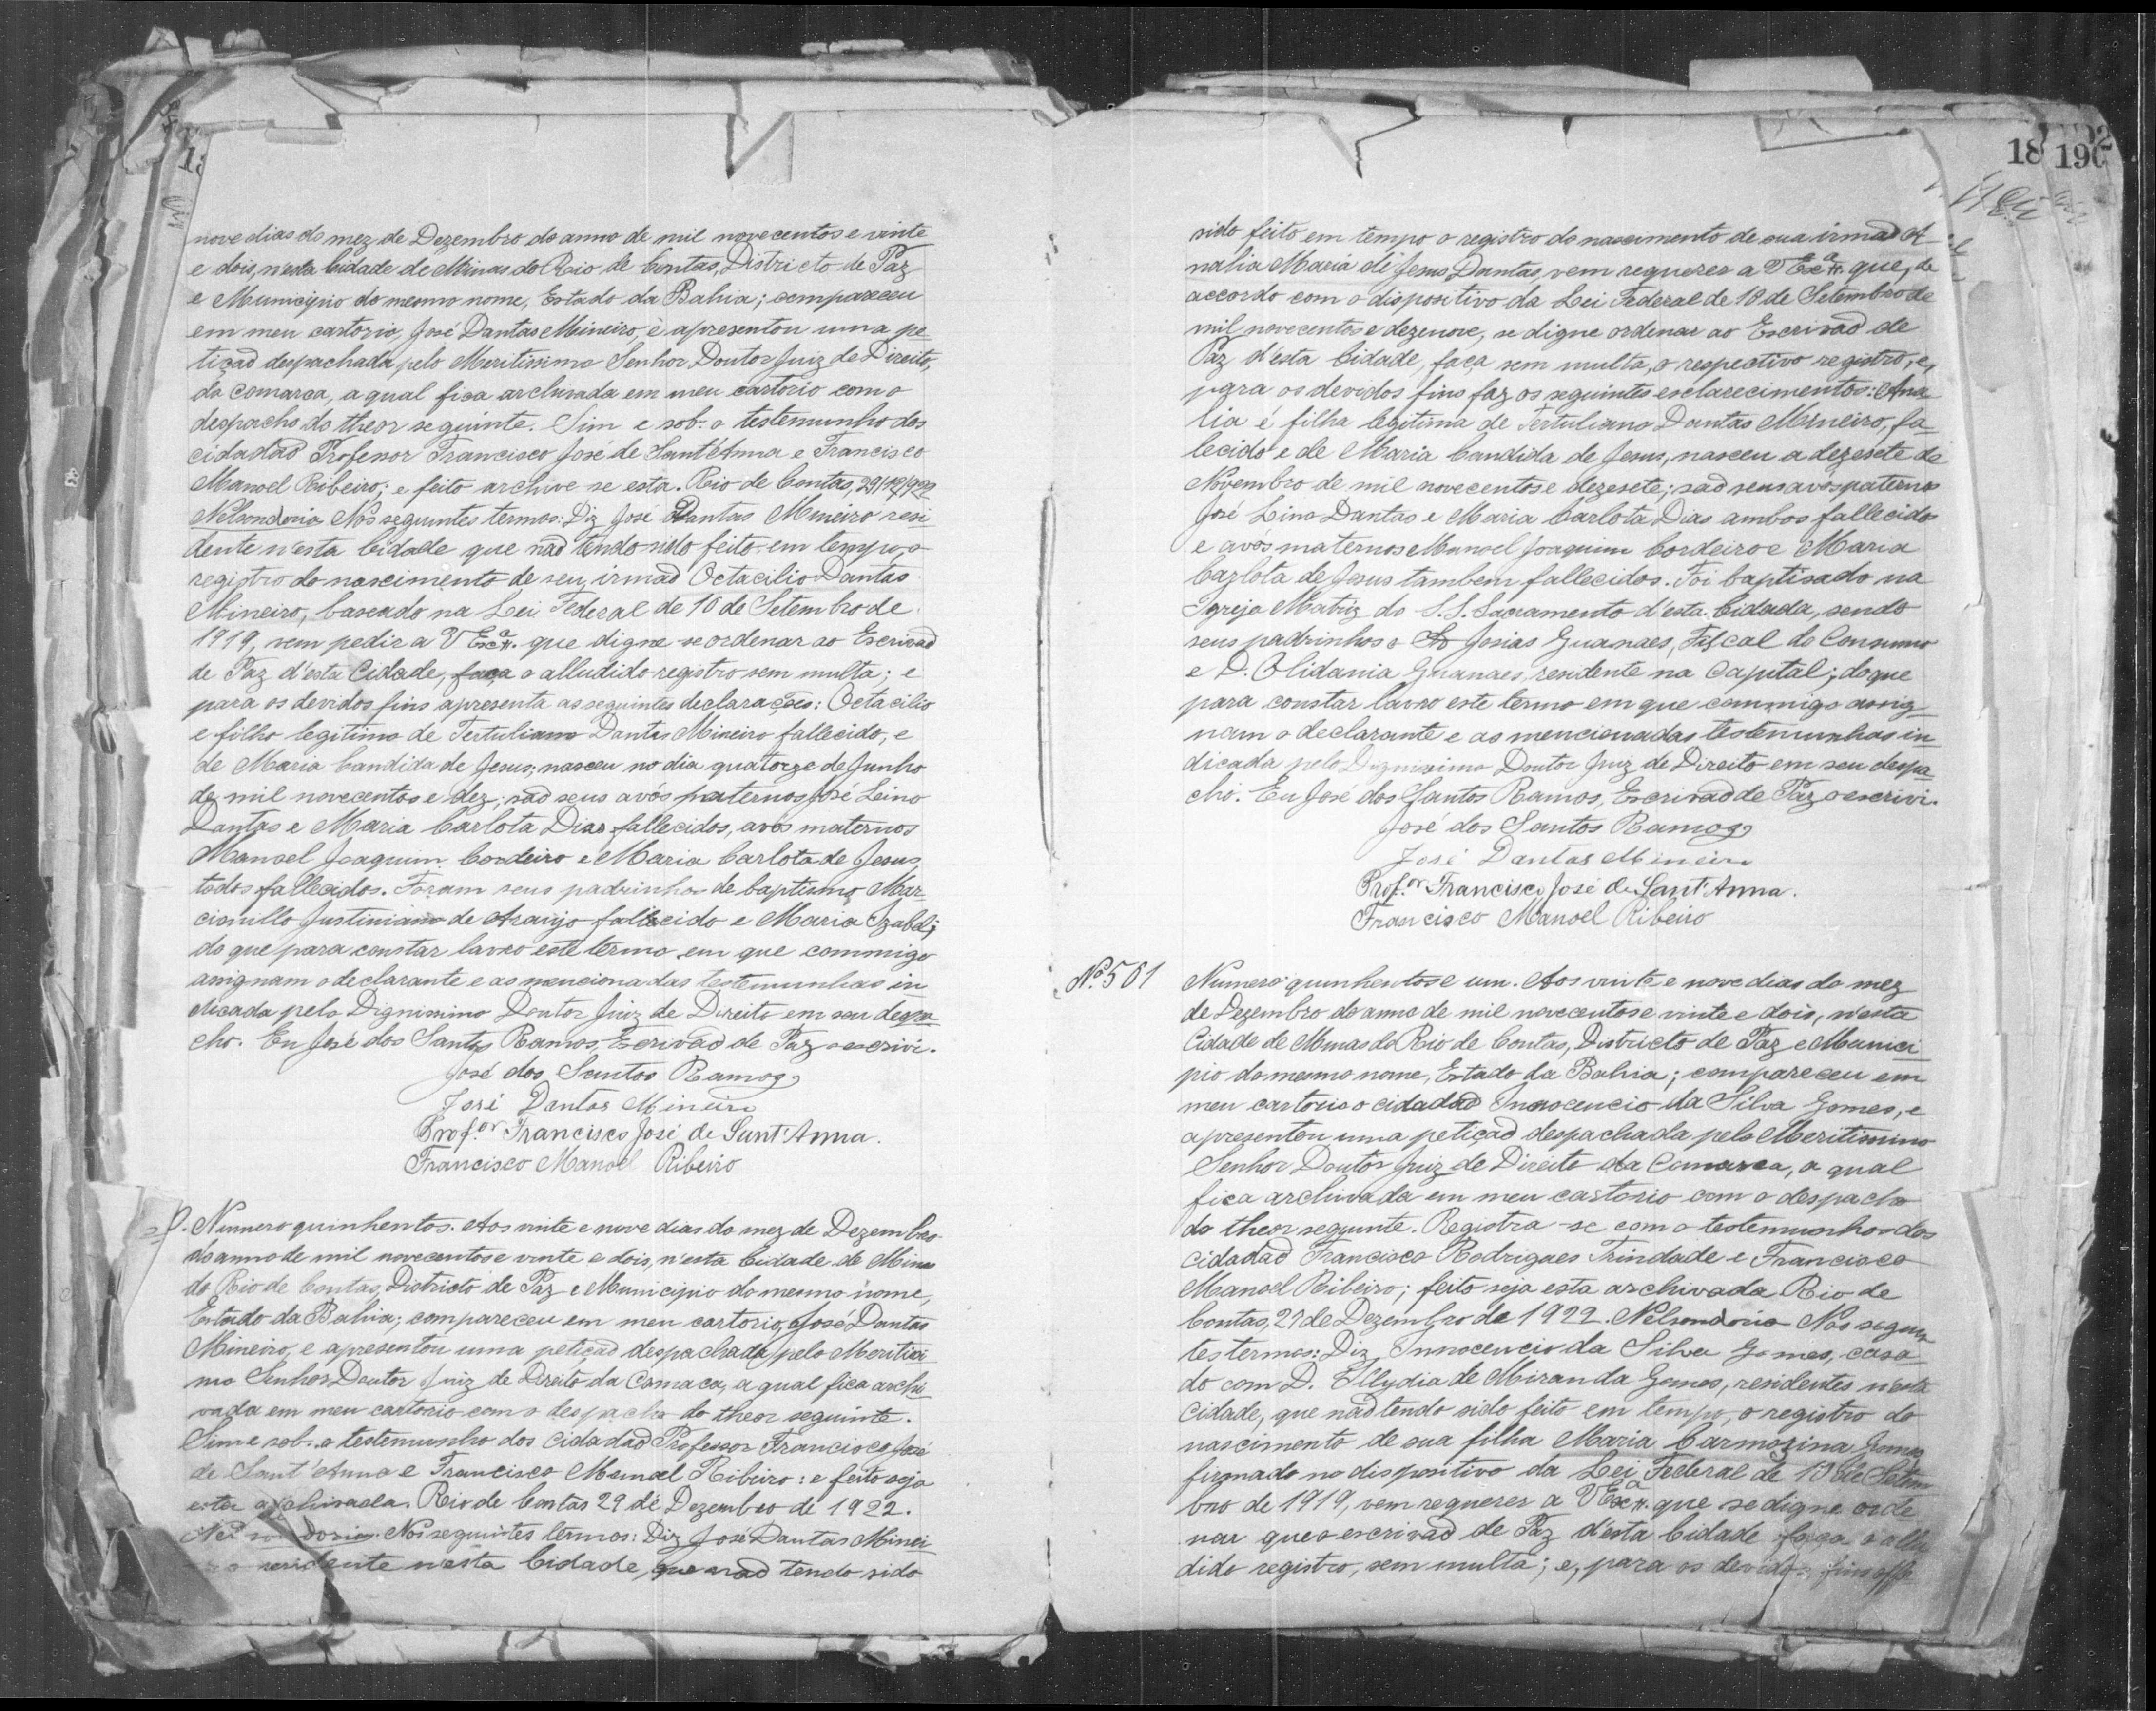 nove dias do mez de Dezembro do anno de mil novecentos e vinte
e dois, n'esta Cidade de Minas do Rio de Contas, Districto de Paz
e Municipio do mesmo nome, Estado da Bahia; compareceu
em meu cartorio, José Dantas Mineiro, e apresentou uma pe-
tição despachada pelo Meritissimo Senhor Doutor Juiz de Direito,
da Comarca, a qual fica archivada em meu cartorio com o
despacho do theor seguinte. Sim e sob o testemunho dos
cidadão Professor Francisco José de Sant'Anna e Francisco
Manoel Ribeiro; e feito archive-se esta. Rio de Contas, 29/12/922
Nelsondoria Nos seguintes termos: Diz José Dantas Mineiro resi-
dente n'esta Cidade que não tendo sido feito em tempo, o
registro do nascimento de seu irmão Octacilio Dantas
Mineiro, baseado na Lei Federal de 10 de Setembro de
1919, vem pedir a V Exª. que digne-se ordenar ao Escrivão
de Paz d'esta Cidade, faça o alludido registro sem multa; e
para os devidos fins apresenta as seguintes declarações: Octacilio
e filho legitimo de Tertuliano Dantas Mineiro fallecido, e
de Maria Candida de Jesus; nasceu no dia quatorze de Junho
de mil novecentos e dez; são seus avós paternos José Leino
Dantas e Maria Carlota Dias fallecidos, avós maternos
Manoel Joaquim Cordeiro e Maria Carlota de Jesus,
todos fallecidos. Foram seus padrinhos de baptismo Mar-
cionillo Justiniano de Araujo fallecido e Maria Izabel;
do que para constar lavro este termo em que commigo
assignam o declarante e as mencionadas testemunhas in-
dicada pelo Dignissimo Doutor Juiz de Direito em seu despa-
cho. Eu José dos Santos Ramos, Escrivão de Paz o escrivi.
José dos Santos Ramos
José Dantas Mineiro
Prof.or Francisco José de Sant'Anna.
Francisco Manoel Ribeiro
Numero quinhentos. Aos vinte e nove dias do mez de Dezembro
do anno de mil novecentos e vinte e dois, n'esta Cidade de Minas
do Rio de Contas, Districto de Paz e Municipio do mesmo nome,
Estado da Bahia; compareceu em meu cartorio, José Dantas
Mineiro, e apresentou uma petição despachada pelo Meritissi-
mo Senhor Doutor Juiz de Direito da Comaca, a qual fica archi-
vada em meu cartorio com o despacho do theor seguinte.
Sim e sob o testemunho dos cidadão Professor Francisco José
de Sant'Anna e Francisco Manoel Ribeiro: e feito seja
esta archivada. Rio de Contas 29 de Dezembro de 1922.
Nelsondoria. Nos seguintes termos: Diz José Dantas Minei-
ro residente n'esta Cidade, que não tendo sido
18 190
sido feito em tempo o registro do nascimento de sua irmão A-
nalia Maria de Jesus Dantas, vem requerer a V Exª. que, de
accordo com o dispositivo da Lei Federal de 10 de Setembro de
mil novecentos e dezenove, se digne ordenar ao Escrivão de
Paz d'esta Cidade, faça sem multa, o respectivo registro, e,
para os devidos fins faz os seguintes esclarecimentos: Ana-
lia é filha legitima de Tertuliano Dantas Mineiro, fa-
lecido e de Maria Candida de Jesus, nasceu a dezesete de
Novembro de mil novecentos e dezesete; são seus avós paternos
José Lino Dantas e Maria Carlota Dias ambos fallecidos
e avós maternos Manoel Joaquim Cordeiro e Maria
Carlota de Jesus tambem fallecidos. Foi baptisado na
Igreja Matriz do S.S. Sacramento d'esta Cidade, sendo
seus padrinhos o Josias Guanaes, Fiscal do Consumo
e D. Olidania Guanaes, residente na Capital; do que
para constar lavro este termo em que commigo assig-
nam o declarante e as mencionadas testemunhas in-
dicada pelo Dignissimo Doutor Juiz de Direito em seu despa-
cho. Eu José dos Santos Ramos, Escrivão de Paz o escrivi.
José dos Santos Ramos
José Dantas Mineiro
Prof.or Francisco José de Sant'Anna.
Francisco Manoel Ribeiro
Nº 501 Numero quinhentos e um. Aos vinte e nove dias do mez
de Dezembro do anno de mil novecentos e vinte e dois, n'esta
Cidade de Minas do Rio de Contas, Districto de Paz e Munici-
pio do mesmo nome, Estado da Bahia; compareceu em
meu cartorio o cidadão Innocencio da Silva Gomes, e
apresentou uma petição despachada pelo Meritissimo
Senhor Doutor Juiz de Direito da Comarca, a qual
fica archivada em meu cartorio com o despacho
do theor seguinte. Registra-se com o testemunho dos
cidadão Francisco Rodrigues Trindade e Francisco
Manoel Ribeiro; feito seja esta archivada Rio de
Contas, 29 de Dezembro de 1922. Nelsondoria Nos seguin-
tes termos: Diz Innocencio da Silva Gomes, casa-
do com D. Illydia de Miranda Gomes, residentes n'esta
Cidade, que não tendo sido feito em tempo, o registro do
nascimento de sua filha Maria Carmozina Gomes
firmado no dispositivo da Lei Federal de 10 de Setem-
bro de 1919, vem requerer a V Exª. que se digne orde-
nar que o escrivão de Paz d'esta Cidade faça o allu-
dido registro, sem multa; e, para os devidos fins